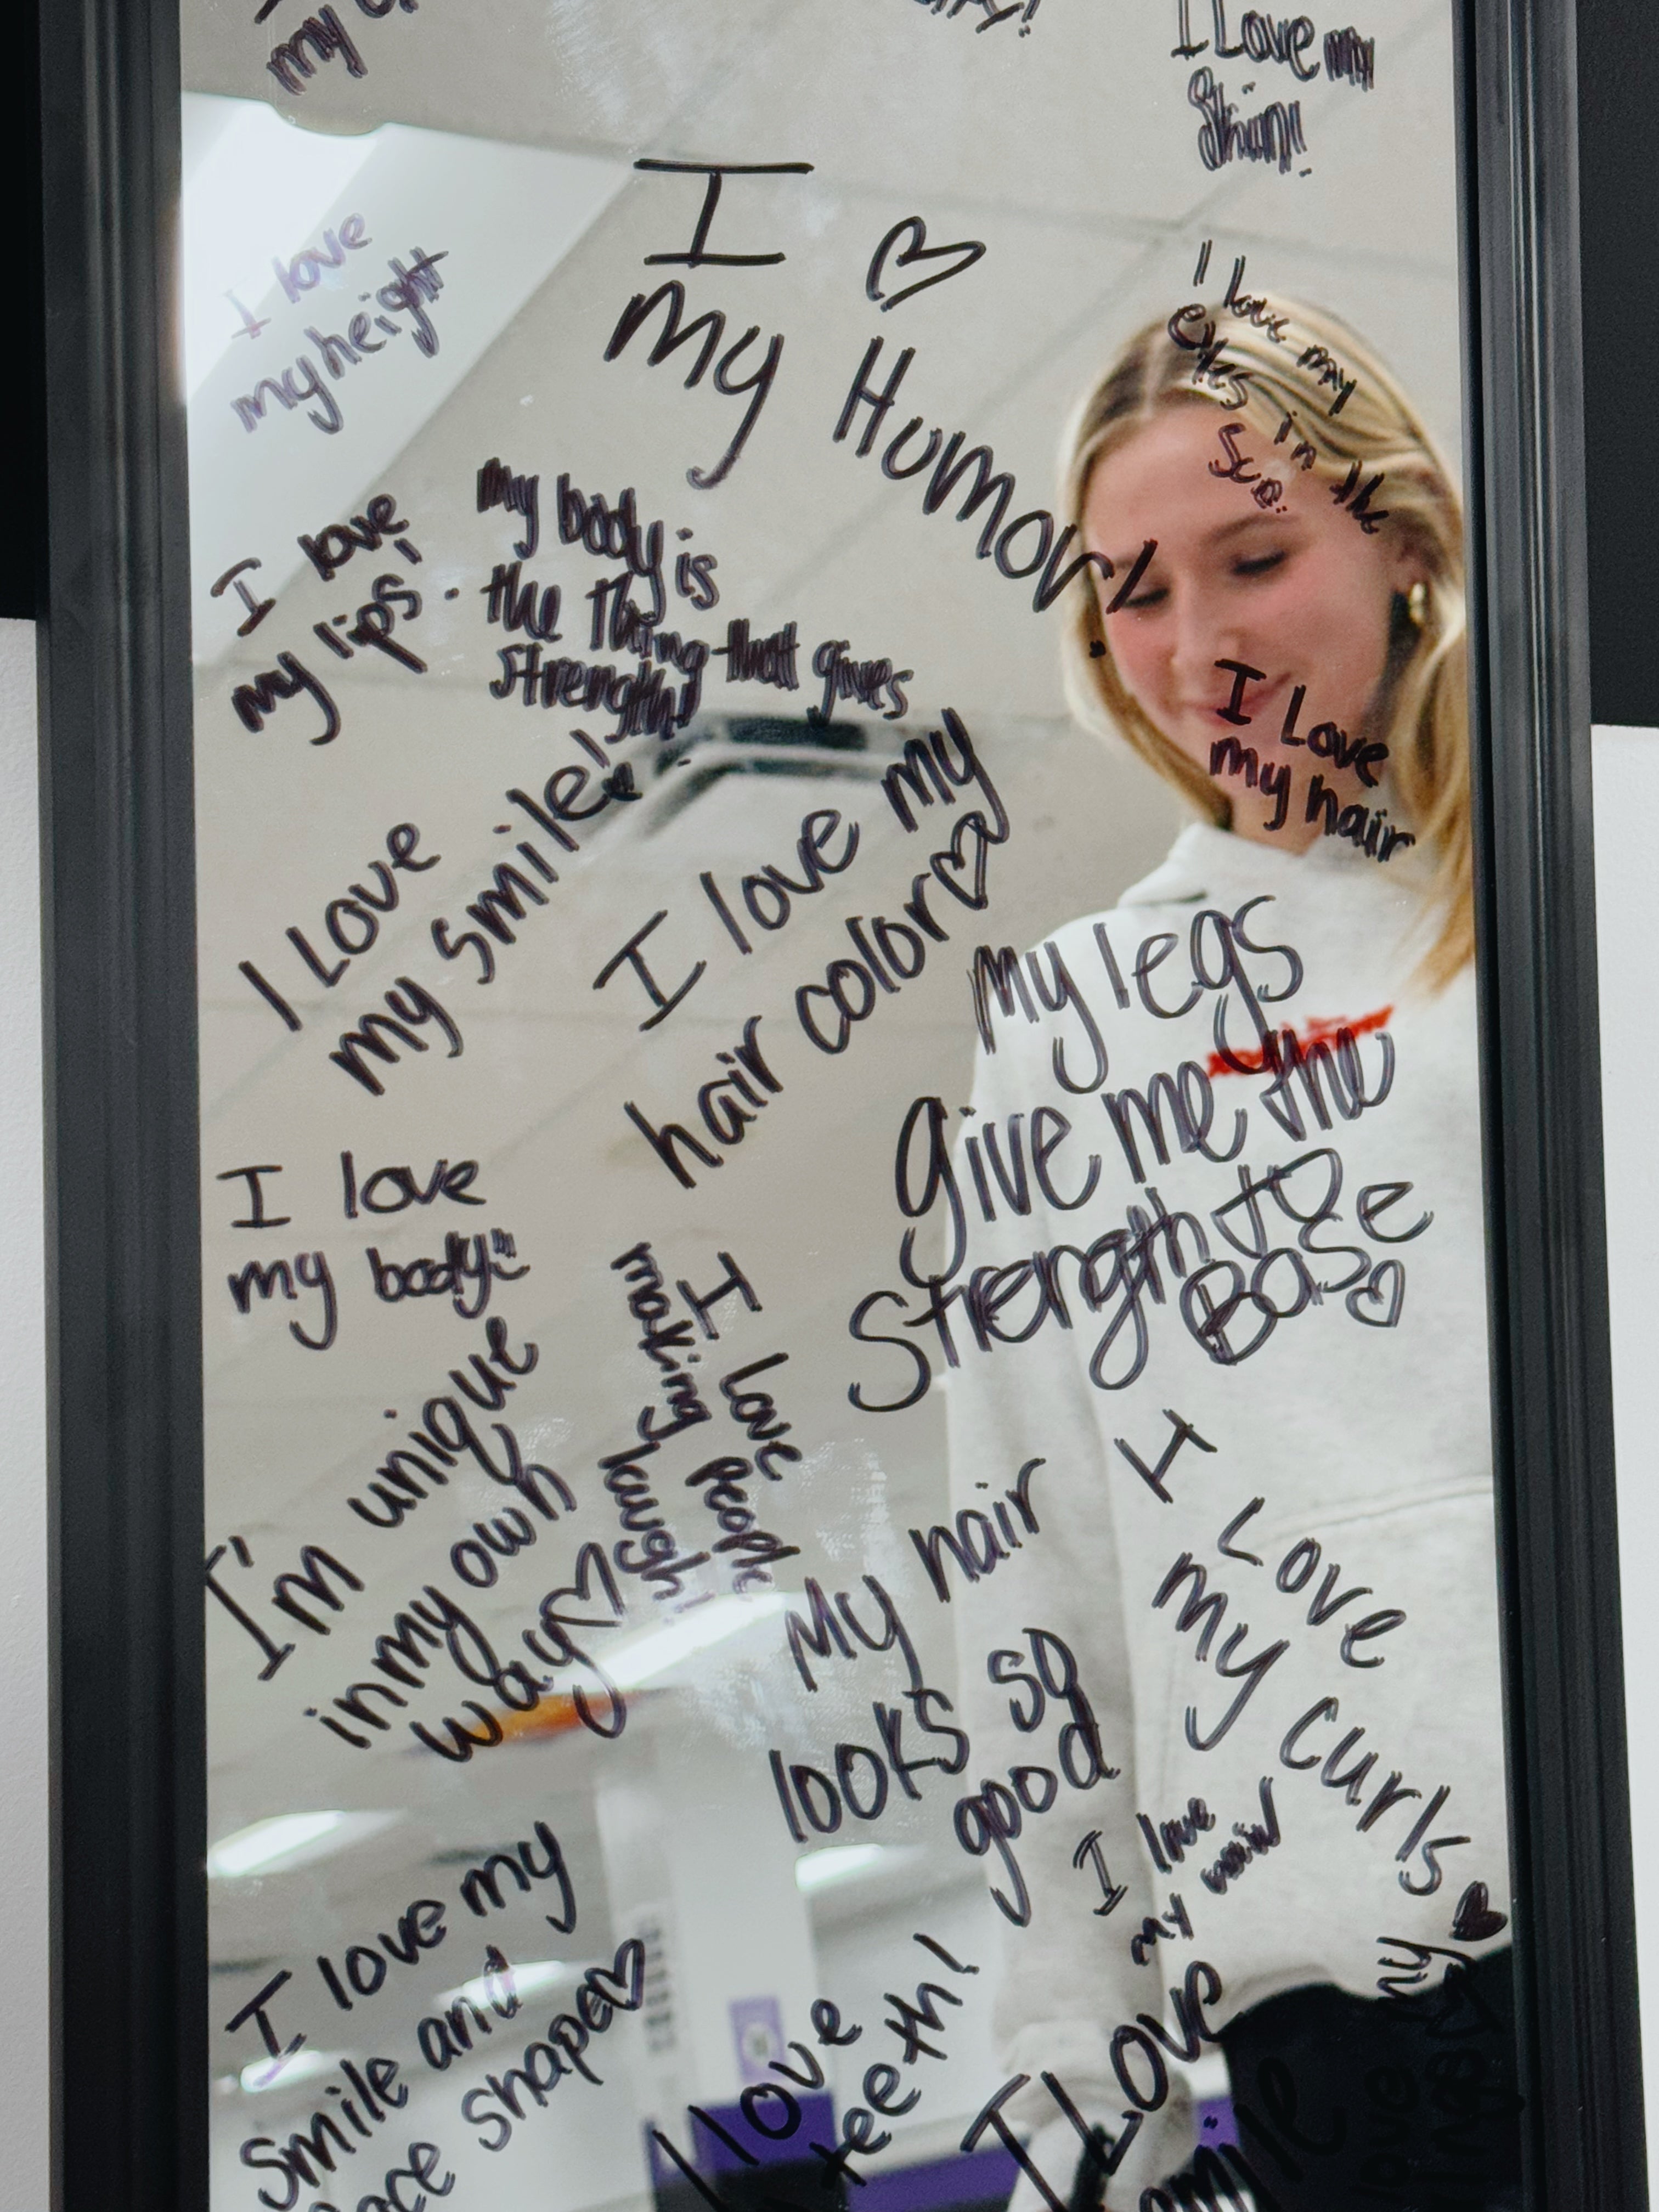 my
I Love my
Skin!
I love
my height
I ♡
my Humor!
I love my
eyes in the
sun!
I love
my lips!
my body is
the thing that gives
strength!
I Love
my hair
I Love
my smile!
I love my
hair color♡
my legs
give me the
strength to
Base♡
I love
my body!!
I love people
making laugh!
I'm unique
in my own
way♡
My hair
looks so
good
I Love
my curls
♥
I love
my hair
I love my
smile and
face shape♡
I love
teeth!
I Love
smile
my
love